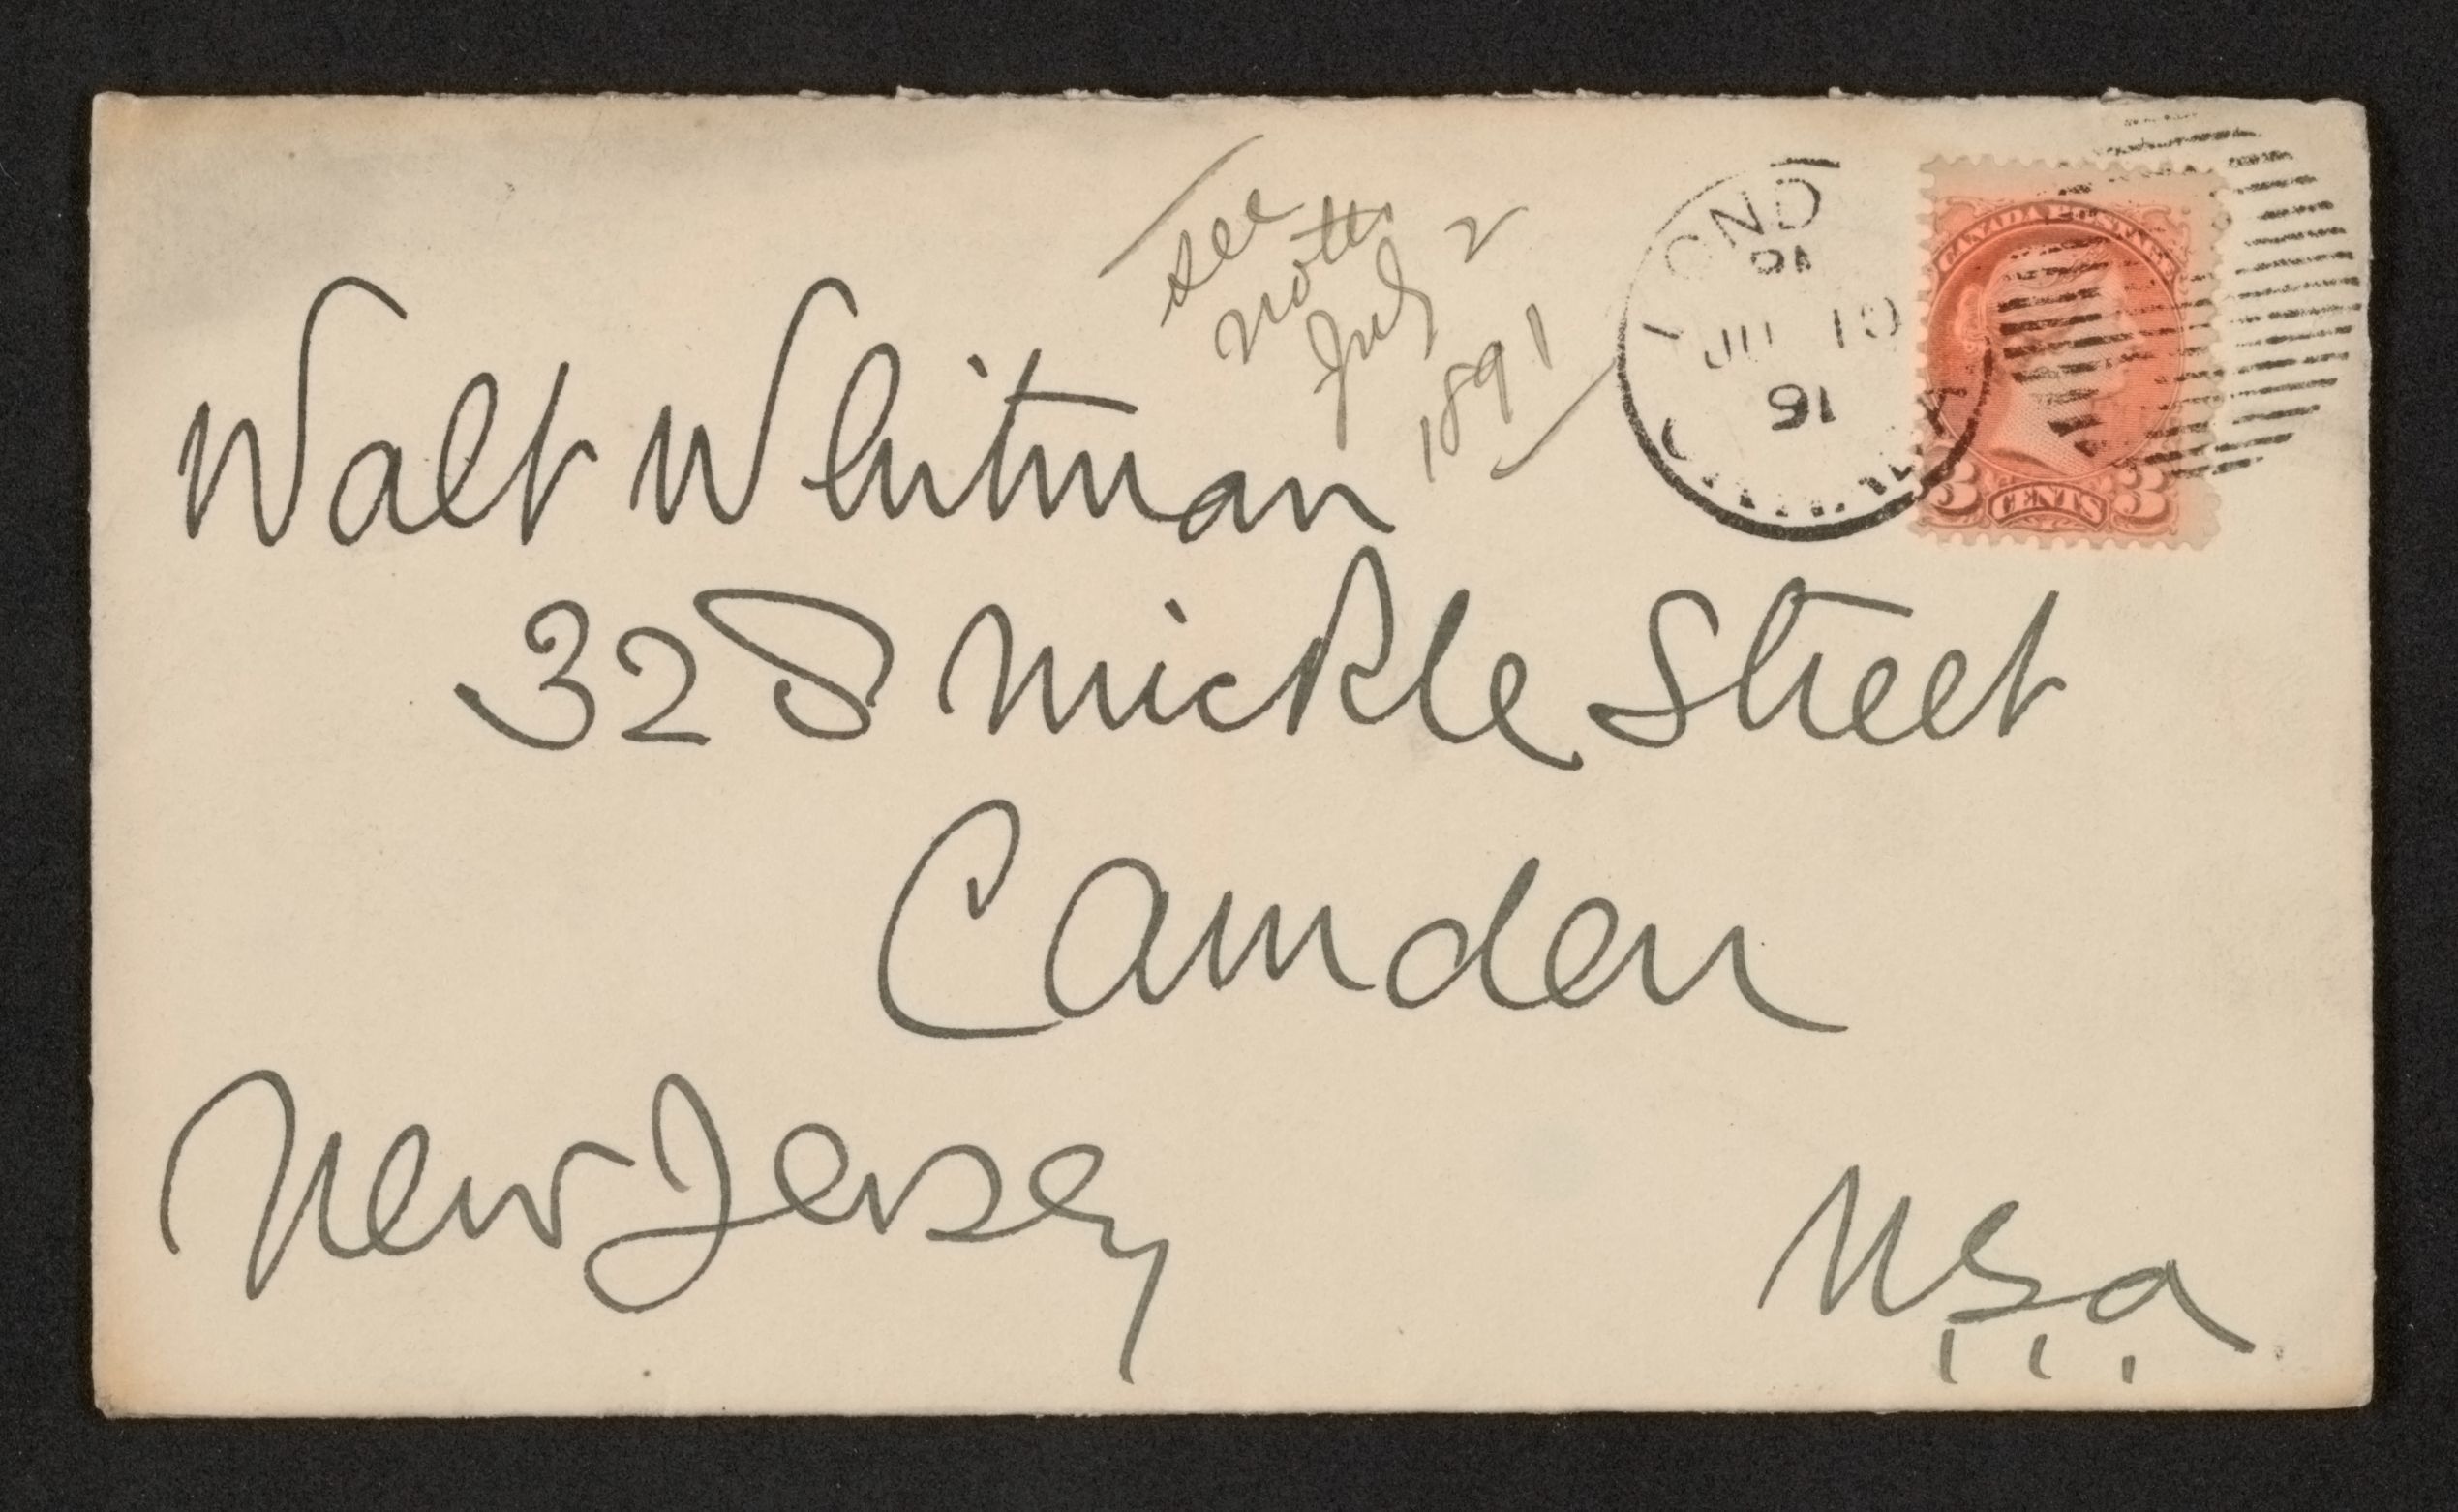 see
notes
July 2
1891
LOND
PM
JU 10
91
CANADA POSTAGE
3 CENTS 3
Walt Whitman
328 Mickle Street
Camden
New Jersey
USa